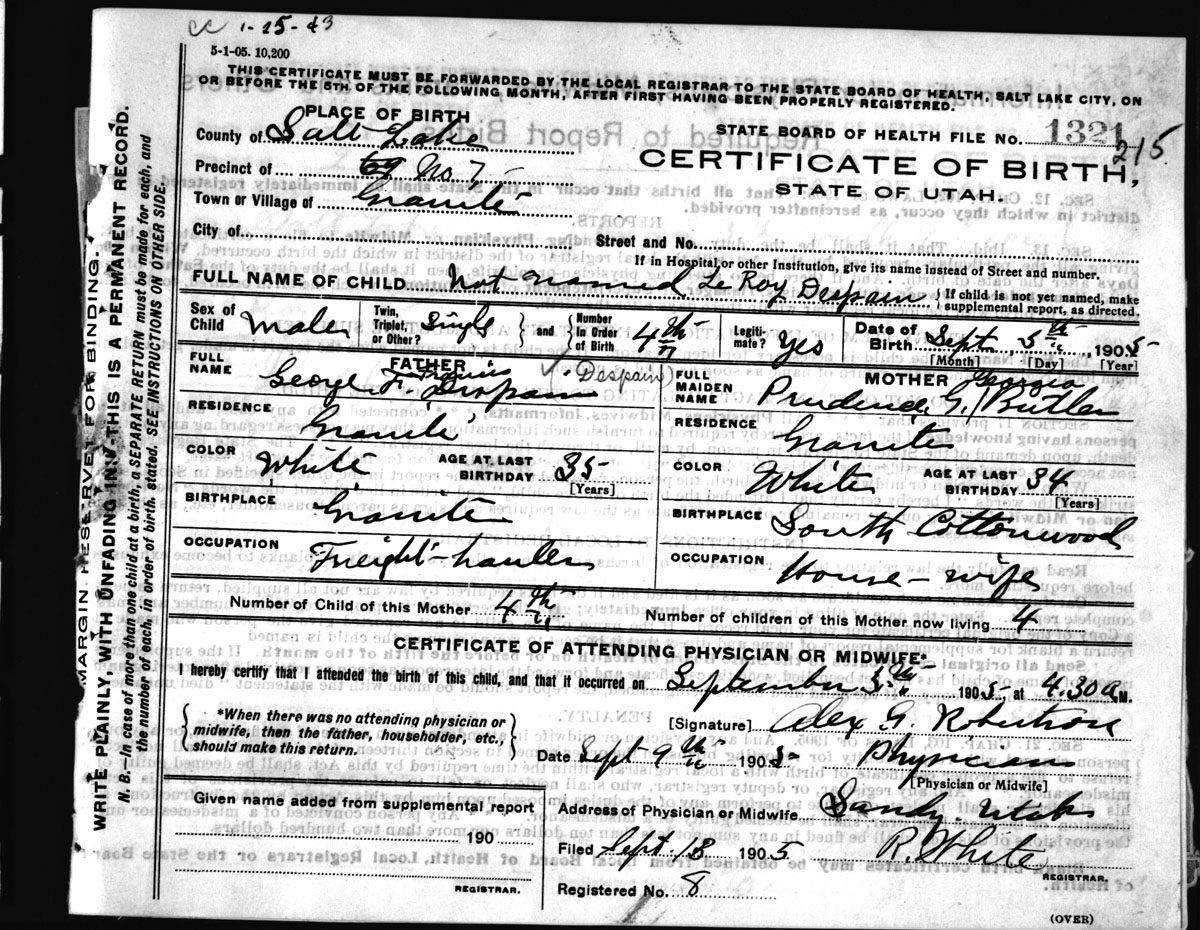 cc 1-25-43
5-1-05. 10,200
THIS CERTIFICATE MUST BE FORWARDED BY THE LOCAL REGISTRAR TO THE STATE BOARD OF HEALTH, SALT LAKE CITY, ON
OR BEFORE THE 5TH OF THE FOLLOWING MONTH, AFTER FIRST HAVING BEEN PROPERLY REGISTERED.
PLACE OF BIRTH
County of Salt Lake
STATE BOARD OF HEALTH FILE NO. 1321
215
CERTIFICATE OF BIRTH,
STATE OF UTAH.
Precinct of No 7
Town or Village of Granite
City of
Street and No.
If in Hospital or other Institution, give its name instead of Street and number.
FULL NAME OF CHILD Not named Le Roy Despain { If child is not yet named, make supplemental report, as directed.
Sex of Child Male
Twin, Triplet, or Other? Single } and { Number in Order of Birth 4th
Legitimate? Yes
Date of Birth Sept 5th, 1905
[Month] [Day] [Year]
FATHER
FULL NAME George F. Despain
Francis
(Despain)
MOTHER
FULL MAIDEN NAME Prudence G. Butler
Georgia
RESIDENCE Granite
RESIDENCE Granite
COLOR White AGE AT LAST BIRTHDAY 35 [Years]
COLOR White AGE AT LAST BIRTHDAY 34 [Years]
BIRTHPLACE Granite
BIRTHPLACE South Cottonwood
OCCUPATION Freight-hauler
OCCUPATION House-wife
Number of Child of this Mother 4th
Number of children of this Mother now living 4
CERTIFICATE OF ATTENDING PHYSICIAN OR MIDWIFE*
I hereby certify that I attended the birth of this child, and that it occurred on September 5th 1905 at 4.30 a M.
{ *When there was no attending physician or midwife, then the father, householder, etc., should make this return. }
[Signature] Alex G. Robertson
Date Sept 9th 1905 Physician
[Physician or Midwife]
Given name added from supplemental report
190
REGISTRAR.
Address of Physician or Midwife Sandy Utah
Filed Sept. 13 1905 R. White
REGISTRAR.
Registered No. 8
(OVER)
MARGIN RESERVED FOR BINDING.
WRITE PLAINLY, WITH UNFADING INK—THIS IS A PERMANENT RECORD.
N. B.—In case of more than one child at a birth, a SEPARATE RETURN must be made for each, and
the number of each, in order of birth, stated. SEE INSTRUCTIONS ON OTHER SIDE.